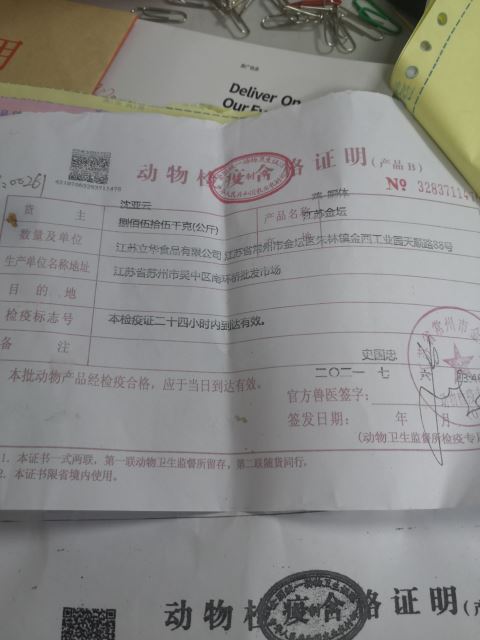 Deliver On
Our
动物检疫合格证明(产品B)
Nº 32837114
货 主
沈亚云
产品名称
数量及单位
捌佰伍拾伍千克(公斤)
江苏金坛
生产单位名称地址
江苏立华食品有限公司 江苏省常州市金坛区朱林镇金西工业园天顺路88号
目 的 地
江苏省苏州市吴中区南环桥批发市场
检疫标志号
备 注
本检疫证二十四小时内到达有效。
本批动物产品经检疫合格，应于当日到达有效。
史国忠
二〇二一 七
官方兽医签字:
签发日期: 年 月
(动物卫生监督所检疫专
1. 本证书一式两联，第一联动物卫生监督所留存，第二联随货同行。
2. 本证书限省境内使用。
动物检疫合格证明